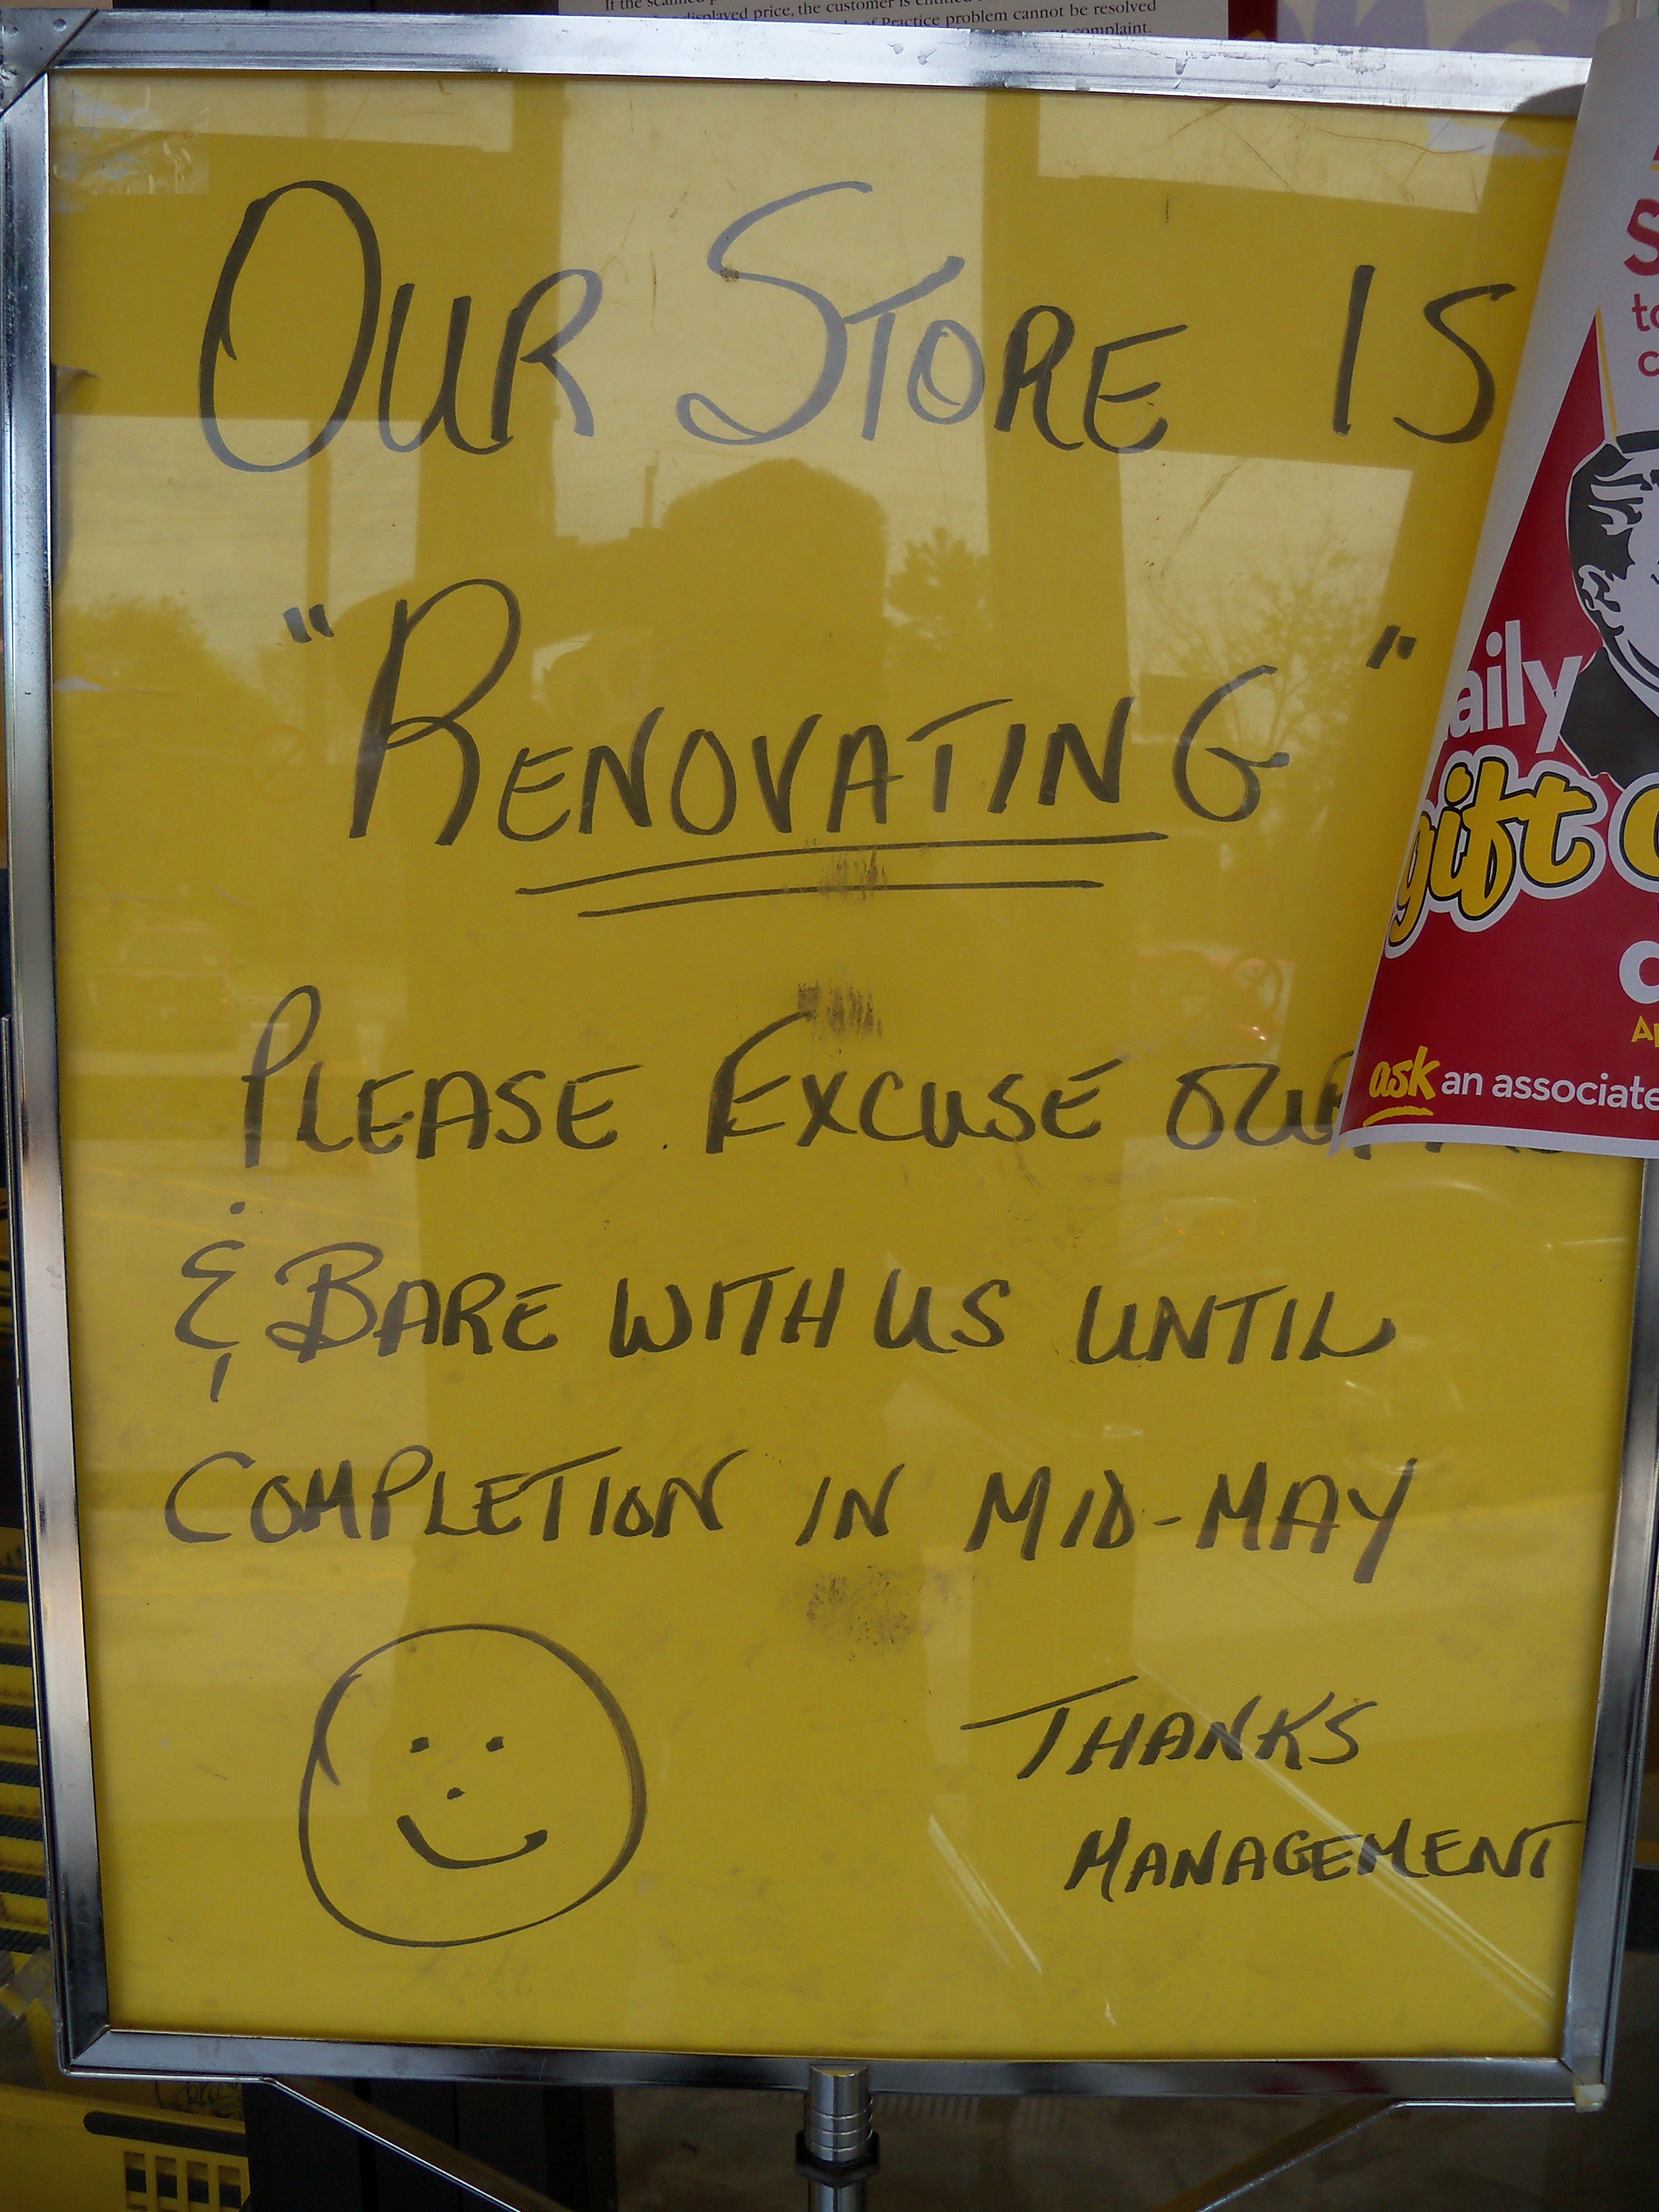 If the scanned
displayed price, the customer is entitled
of Practice problem cannot be resolved
complaint.
OUR STORE IS
"RENOVATING"
PLEASE EXCUSE OUR
& BARE WITH US UNTIL
COMPLETION IN MID-MAY
THANKS
MANAGEMENT
aily
gift
ask an associate